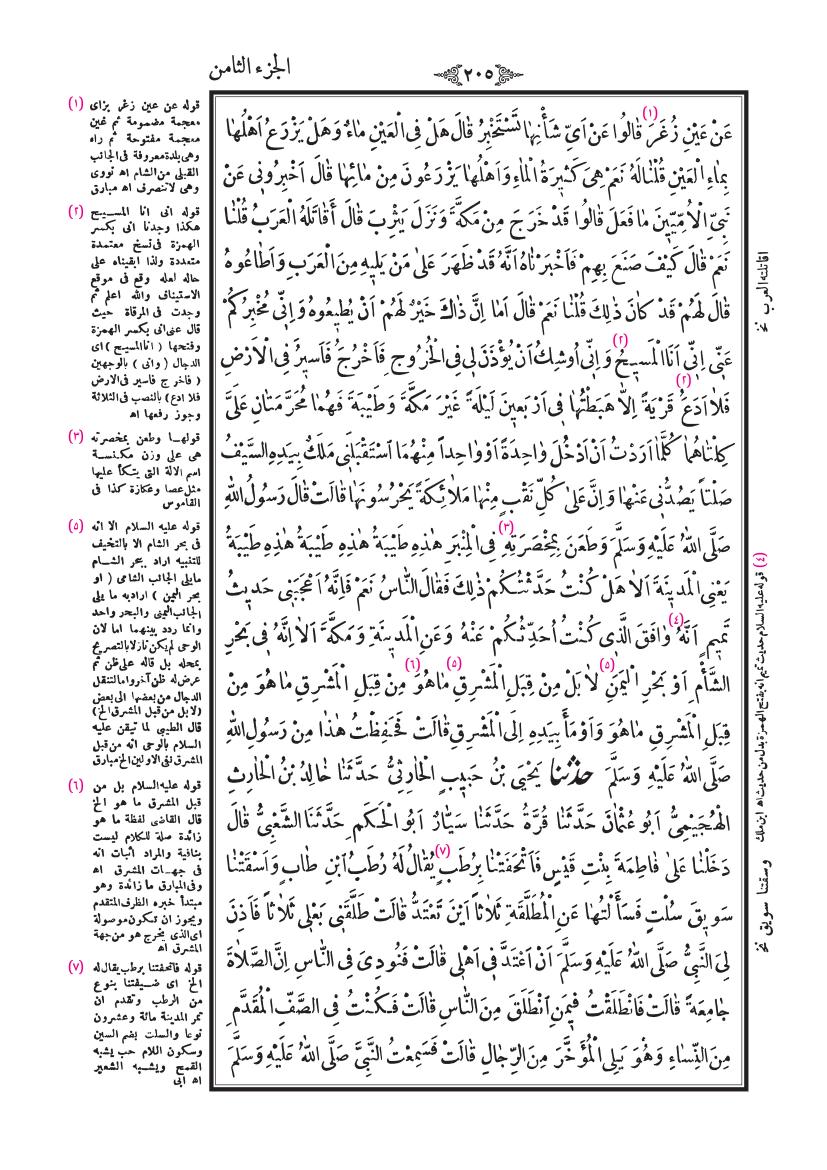 ٢٠٥
الجزء الثامن
عَنْ عَيْنِ زُغَرَ (١) قَالُوا عَنْ اَىِّ شَأْنِهَا تَسْتَخْبِرُ قَالَ هَلْ فِى الْعَيْنِ مَاءٌ وَهَلْ يَزْرَعُ اَهْلُهَا
بِمَاءِ الْعَيْنِ قُلْنَا لَهُ نَعَمْ هِىَ كَثِيرَةُ الْمَاءِ وَاَهْلُهَا يَزْرَعُونَ مِنْ مَائِهَا قَالَ اَخْبِرُونِى عَنْ
نَبِىِّ الْاُمِّيِّينَ مَا فَعَلَ قَالُوا قَدْ خَرَجَ مِنْ مَكَّةَ وَنَزَلَ يَثْرِبَ قَالَ أَقَاتَلَهُ الْعَرَبُ قُلْنَا
نَعَمْ قَالَ كَيْفَ صَنَعَ بِهِمْ فَاَخْبَرْنَاهُ اَنَّهُ قَدْ ظَهَرَ عَلَىٰ مَنْ يَلِيهِ مِنَ الْعَرَبِ وَاَطَاعُوهُ
قَالَ لَهُمْ قَدْ كَانَ ذٰلِكَ قُلْنَا نَعَمْ قَالَ اَمَا اِنَّ ذَاكَ خَيْرٌ لَهُمْ اَنْ يُطِيعُوهُ وَاِنِّى مُخْبِرُكُمْ
عَنِّى اِنِّى اَنَا الْمَسِيحُ (٢) وَاِنِّى اُوشِكُ اَنْ يُؤْذَنَ لِى فِى الْخُرُوجِ فَاَخْرُجُ فَاَسِيرُ فِى الْاَرْضِ
فَلَا اَدَعُ (٢) قَرْيَةً اِلَّا هَبَطْتُهَا فِى اَرْبَعِينَ لَيْلَةً غَيْرَ مَكَّةَ وَطَيْبَةَ فَهُمَا مُحَرَّمَتَانِ عَلَىَّ
كِلْتَاهُمَا كُلَّمَا اَرَدْتُ اَنْ اَدْخُلَ وَاحِدَةً اَوْ وَاحِداً مِنْهُمَا اسْتَقْبَلَنِى مَلَكٌ بِيَدِهِ السَّيْفُ
صَلْتاً يَصُدُّنِى عَنْهَا وَاِنَّ عَلَىٰ كُلِّ نَقْبٍ مِنْهَا مَلَائِكَةً يَحْرُسُونَهَا قَالَتْ قَالَ رَسُولُ اللهِ
صَلَّى اللهُ عَلَيْهِ وَسَلَّمَ وَطَعَنَ بِمِخْصَرَتِهِ (٣) فِى الْمِنْبَرِ هٰذِهِ طَيْبَةُ هٰذِهِ طَيْبَةُ هٰذِهِ طَيْبَةُ
يَعْنِى الْمَدِينَةَ اَلَا هَلْ كُنْتُ حَدَّثْتُكُمْ ذٰلِكَ فَقَالَ النَّاسُ نَعَمْ فَاِنَّهُ اَعْجَبَنِى حَدِيثُ
تَمِيمٍ اَنَّهُ (٤) وَافَقَ الَّذِى كُنْتُ اُحَدِّثُكُمْ عَنْهُ وَعَنِ الْمَدِينَةِ وَمَكَّةَ اَلَا اِنَّهُ فِى بَحْرِ
الشَّأْمِ اَوْ بَحْرِ الْيَمَنِ (٥) لَا بَلْ مِنْ قِبَلِ الْمَشْرِقِ (٥) مَاهُوَ (٦) مِنْ قِبَلِ الْمَشْرِقِ مَا هُوَ مِنْ
قِبَلِ الْمَشْرِقِ مَاهُوَ وَاَوْمَأَ بِيَدِهِ اِلَى الْمَشْرِقِ قَالَتْ فَحَفِظْتُ هٰذَا مِنْ رَسُولِ اللهِ
صَلَّى اللهُ عَلَيْهِ وَسَلَّمَ حَدَّثَنَا يَحْيَى بْنُ حَبِيبٍ الْحَارِثِىُّ حَدَّثَنَا خَالِدُ بْنُ الْحَارِثِ
الْهُجَيْمِىُّ اَبُو عُثْمَانَ حَدَّثَنَا قُرَّةُ حَدَّثَنَا سَيَّارٌ اَبُو الْحَكَمِ حَدَّثَنَا الشَّعْبِىُّ قَالَ
دَخَلْنَا عَلَىٰ فَاطِمَةَ بِنْتِ قَيْسٍ فَاَتْحَفَتْنَا بِرُطَبٍ (٧) يُقَالُ لَهُ رُطَبُ ابْنِ طَابٍ وَاَسْقَتْنَا
سَوِيقَ سُلْتٍ فَسَأَلْتُهَا عَنِ الْمُطَلَّقَةِ ثَلَاثاً اَيْنَ تَعْتَدُّ قَالَتْ طَلَّقَنِى بَعْلِى ثَلَاثاً فَاَذِنَ
لِىَ النَّبِىُّ صَلَّى اللهُ عَلَيْهِ وَسَلَّمَ اَنْ اَعْتَدَّ فِى اَهْلِى قَالَتْ فَنُودِىَ فِى النَّاسِ اِنَّ الصَّلَاةَ
جَامِعَةً قَالَتْ فَانْطَلَقْتُ فِيمَنِ انْطَلَقَ مِنَ النَّاسِ قَالَتْ فَكُنْتُ فِى الصَّفِّ الْمُقَدَّمِ
مِنَ النِّسَاءِ وَهُوَ يَلِى الْمُؤَخَّرَ مِنَ الرِّجَالِ قَالَتْ فَسَمِعْتُ النَّبِىَّ صَلَّى اللهُ عَلَيْهِ وَسَلَّمَ
اقاتلته العرب نخ
(٤) قوله عليه السلام حديث تميم انه بفتح الهمزة بدل من حديث اه ابن ملك
وسقتنا سويق نخ
(١) قوله عن عين زغر بزاى
معجمة مضمومة ثم غين
معجمة مفتوحة ثم راء
وهى بلدة معروفة فى الجانب
القبلى من الشام اه نووى
وهى لاتنصرف اه مبارق
(٢) قوله انى انا المسيح
هكذا وجدنا انى بكسر
الهمزة فى نسخ معتمدة
متعددة ولذا ابقيناه على
حاله لعله وقع فى موقع
الاستيناف والله اعلم ثم
وجدت فى المرقاة حيث
قال عنى انى بكسر الهمزة
وفتحها ( انا المسيح ) اى
الدجال ( وانى ) بالوجهين
( فاخرج فاسير فى الارض
فلا ادع ) بالنصب فى الثلاثة
وجوز رفعها اه
(٣) قولها وطعن بمخصرته
هى على وزن مكنسة
اسم الآلة التى يتكأ عليها
مثل عصا وعكازة كذا فى
القاموس
(٥) قوله عليه السلام الا انه
فى بحر الشام الا بالتخفيف
للتنبيه اراد ببحر الشام
مايلى الجانب الشامى ( او
بحر اليمن ) اراد به ما يلى
الجانب اليمنى والبحر واحد
وانما ردد بينهما اما لان
الوحى لم يكن نازلا بالتصريح
بمحله بل قاله على ظن ثم
عرض له ظن آخر واما لتنقل
الدجال من بعضها الى بعض
(لا بل من قبل المشرق الخ)
قال الطيبى لما تيقن عليه
السلام بالوحى انه من قبل
المشرق نفى الاولين الخ مبارق
(٦) قوله عليه السلام بل من
قبل المشرق ما هو الخ
قال القاضى لفظة ما هو
زائدة صلة للكلام ليست
بنافية والمراد اثبات انه
فى جهات المشرق اه
وفى المبارق ما زائدة وهو
مبتدأ خبره الظرف المتقدم
ويجوز ان تكون موصولة
اى الذى يخرج هو من جهة
المشرق اه
(٧) قوله فاتحفتنا برطب يقال له
الخ اى ضيفتنا بنوع
من الرطب وتقدم ان
تمر المدينة مائة وعشرون
نوعا والسلت بضم السين
وسكون اللام حب يشبه
القمح ويشبه الشعير
اه ابى